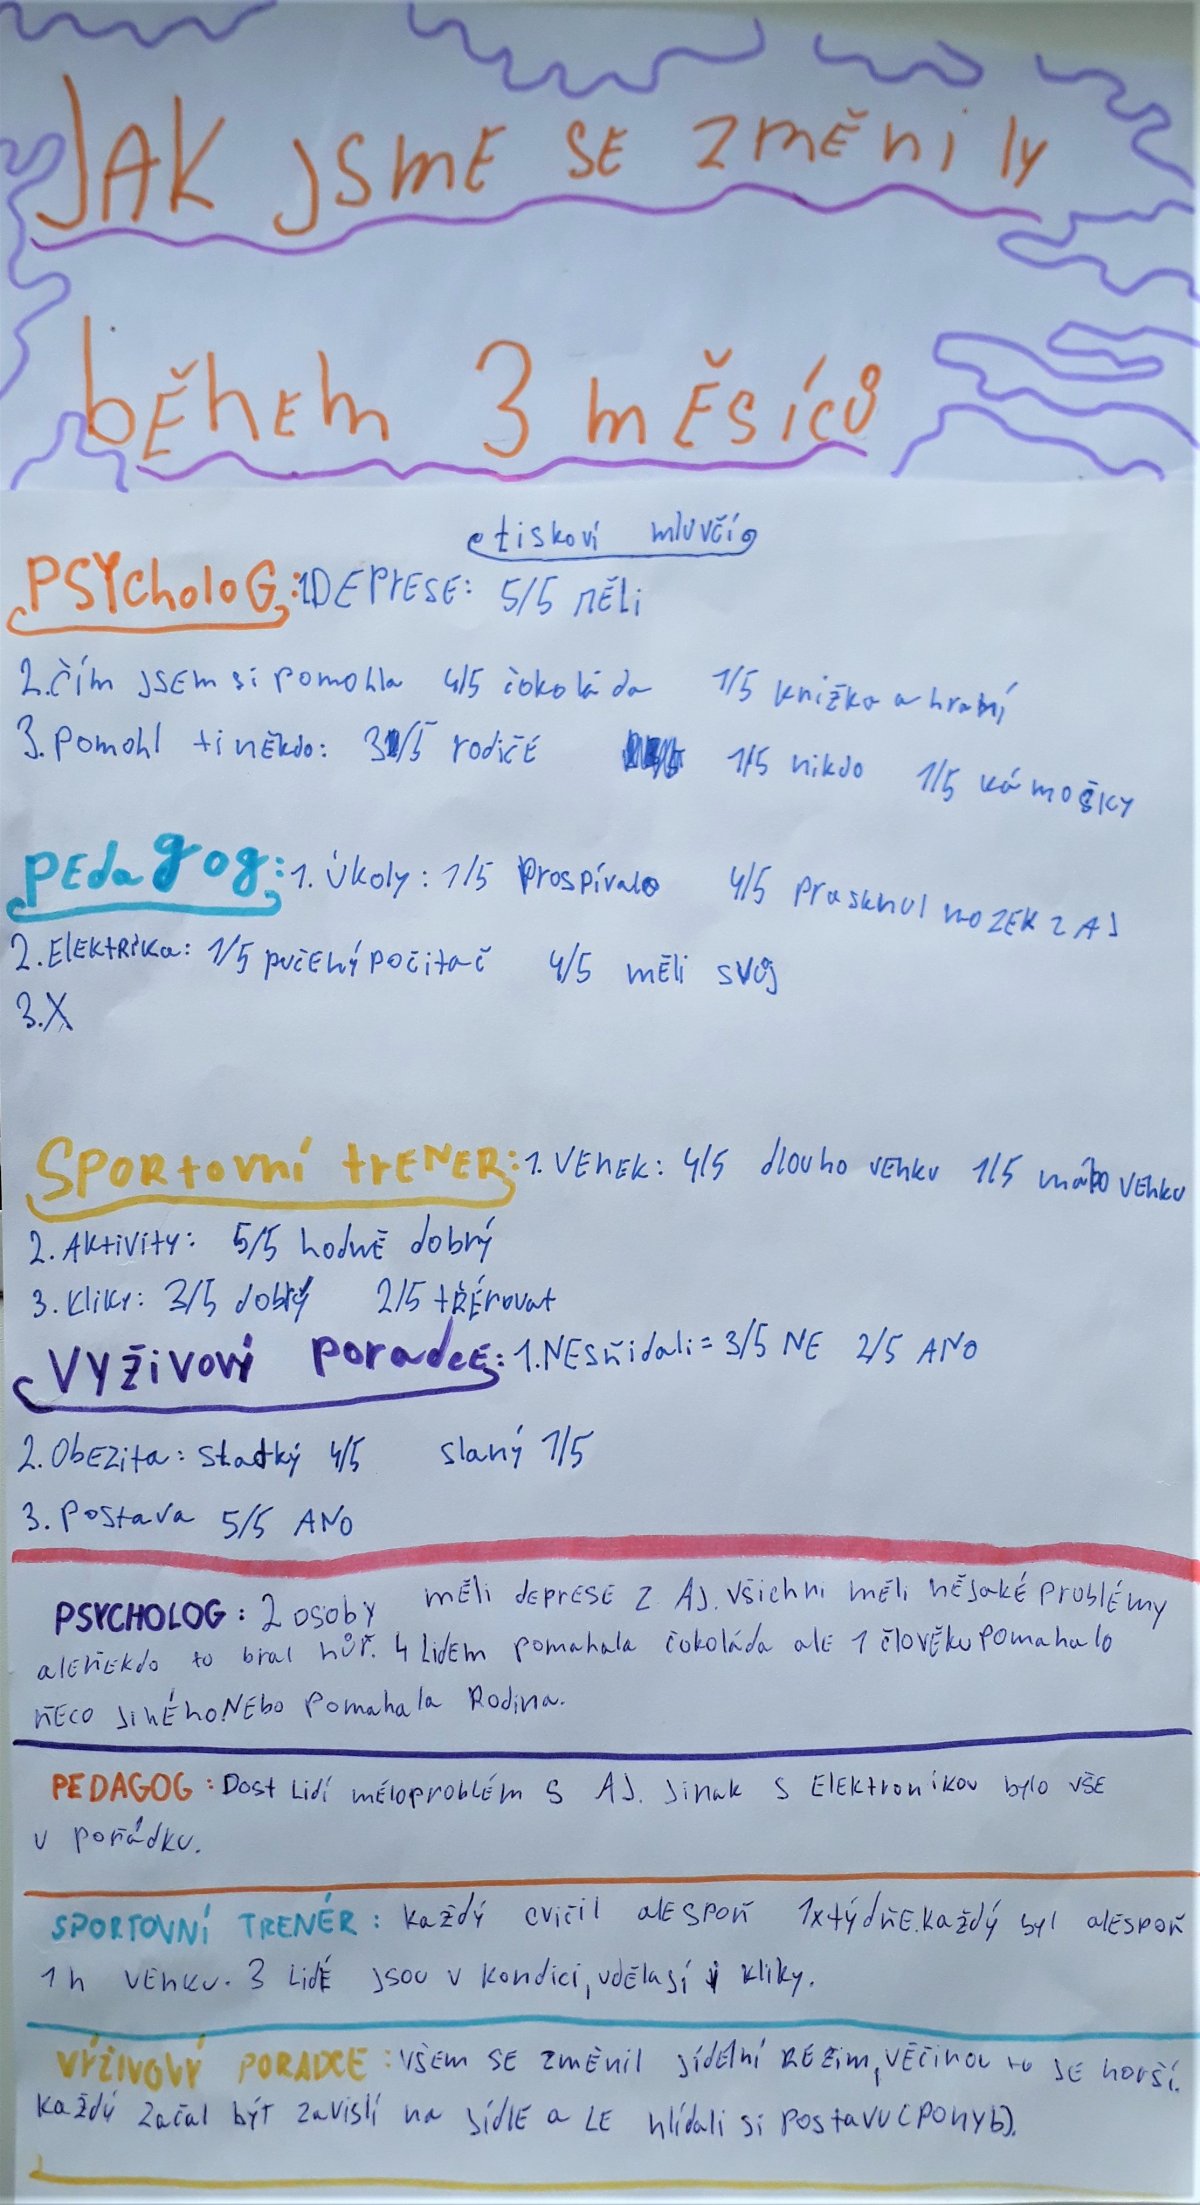 JAK jsmE SE změnily
běhEm 3 měsíců
tiskoví mluvčí
PSYcholoG: 1.DEPrESE: 5/5 měli
2. čím jsem si pomohla 4/5 čokoláda 1/5 knižka a hraní
3. pomohl ti někdo: 3/5 rodičé 1/5 nikdo 1/5 kámošky
PEdagog: 1. Úkoly: 1/5 Prospívalo 4/5 prasknul mozek z AJ
2. ElEktrika: 1/5 pučený počitač 4/5 měli svůj
3. X
SPORtovní trENER: 1. VENEK: 4/5 dlouho venku 1/5 málo venku
2. Aktivity: 5/5 hodně dobrý
3. kliky: 3/5 dobrý 2/5 třérovat
VYživový poradcE: 1. NESňidali = 3/5 NE 2/5 ANO
2. Obezita: sladký 4/5 slaný 1/5
3. Postava 5/5 ANO
PSYCHOLOG: 2 osoby měli deprese z AJ. Všichni měli nějaké problémy
aleněkdo to bral hůř. 4 lidem pomahala čokoláda ale 1 člověku pomahalo
něco jiného. Nebo pomahala Rodina.
PEDAGOG: Dost lidí měloproblém s AJ. Jinak s Elektronikou bylo vše
v pořádku.
SPORTOVNÍ TRENÉR: každý cvičil alespoň 1x týdně. každý byl alespoň
1 h venku. 3 lidé jsou v kondici, udělají i kliky.
VÝŽIVOVÝ PORADCE: všem se změnil jídelní REžim, věčinou to se horší.
každý začal být zavislí na jídle a LE hlídali si postavu (pohyb).